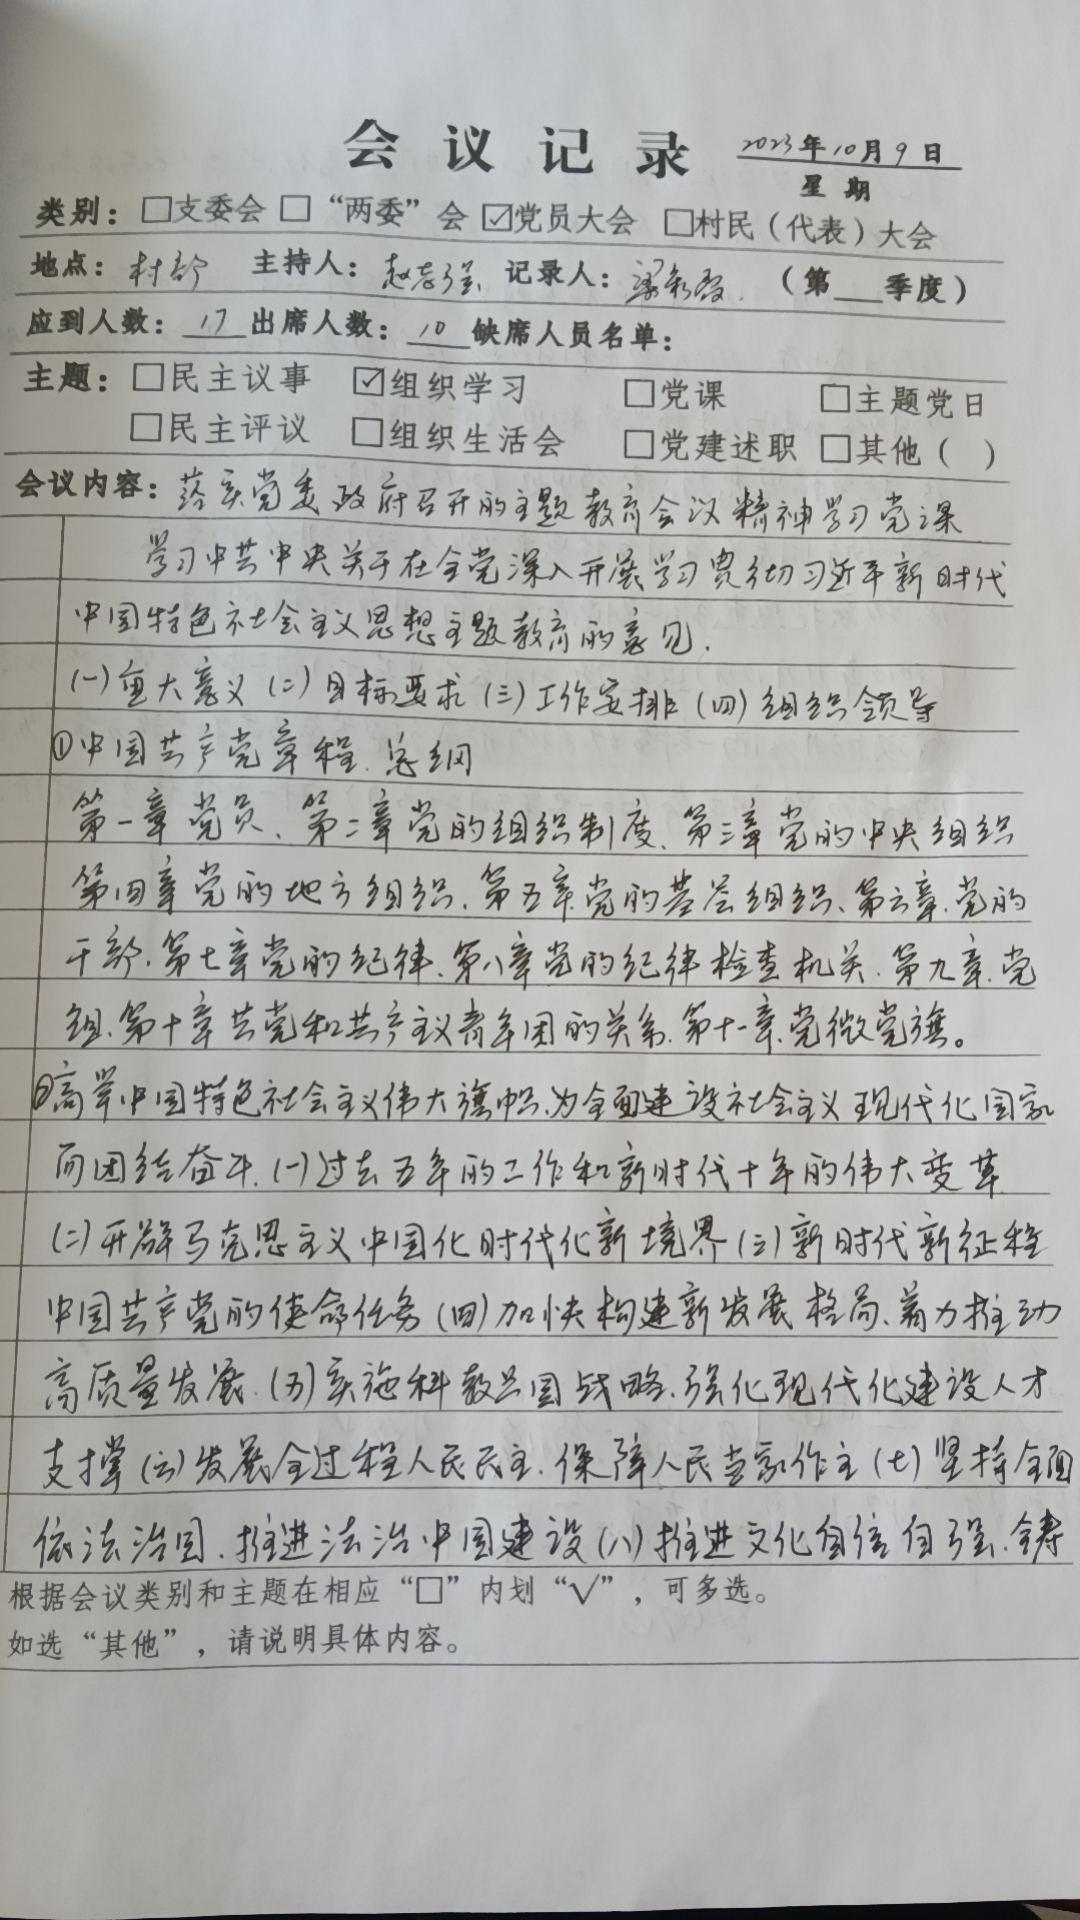 会议记录 2023年10月9日
星期
类别：□支委会 □“两委”会 ☑党员大会 □村民（代表）大会
地点：村部 主持人：赵志强 记录人：梁 （第___季度）
应到人数：17 出席人数：10 缺席人员名单：
主题：□民主议事 ☑组织学习 □党课 □主题党日
□民主评议 □组织生活会 □党建述职 □其他（ ）
会议内容：落实党委政府召开的主题教育会议精神学习党课
学习中共中央关于在全党深入开展学习贯彻习近平新时代
中国特色社会主义思想主题教育的意见.
(一)重大意义(二)目标要求(三)工作安排(四)组织领导
①中国共产党章程.总纲
第一章党员、第二章党的组织制度、第三章党的中央组织
第四章党的地方组织、第五章党的基层组织、第六章.党的
干部.第七章党的纪律、第八章党的纪律检查机关.第九章.党
组.第十章共党和共产主义青年团的关系.第十一章.党微党旗。
②高举中国特色社会主义伟大旗帜、为全面建设社会主义现代化国家
而团结奋斗.(一)过去五年的工作和新时代十年的伟大变革
(二)开辟马克思主义中国化时代化新境界(三)新时代新征程
中国共产党的使命任务(四)加快构建新发展格局、着力推动
高质量发展.(五)实施科教兴国战略、强化现代化建设人才
支撑(六)发展全过程人民民主.保障人民当家作主(七)坚持全面
依法治国.推进法治中国建设(八)推进文化自信自强.铸
根据会议类别和主题在相应“□”内划“√”，可多选。
如选“其他”，请说明具体内容。